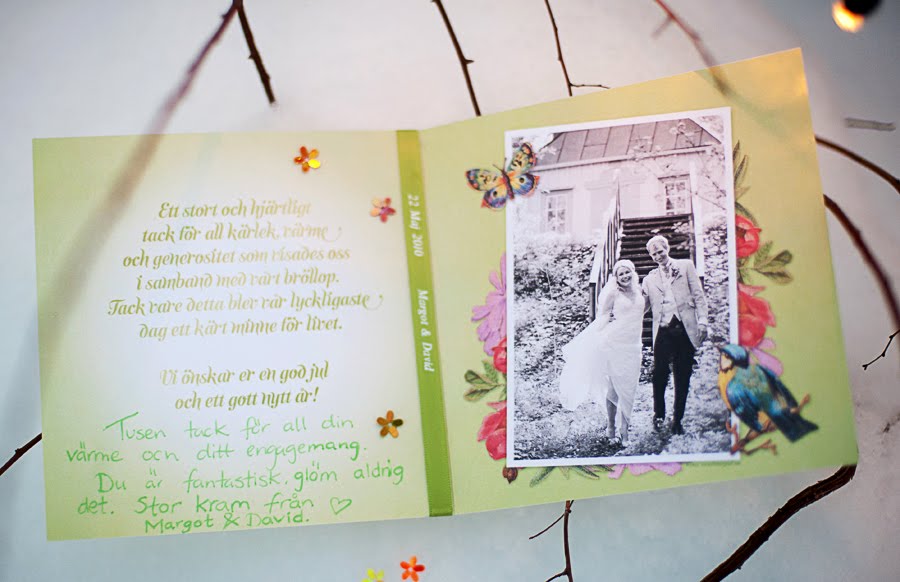 Ett stort och hjärtligt
tack för all kärlek, värme
och generositet som visades oss
i samband med vårt bröllop.
Tack vare detta blev vår lyckligaste
dag ett kärt minne för livet.
Vi önskar er en god jul
och ett gott nytt år!
Tusen tack för all din
värme och ditt engagemang.
Du är fantastisk, glöm aldrig
det. Stor kram från ♡
Margot & David.
22 Maj 2010 Margot & David